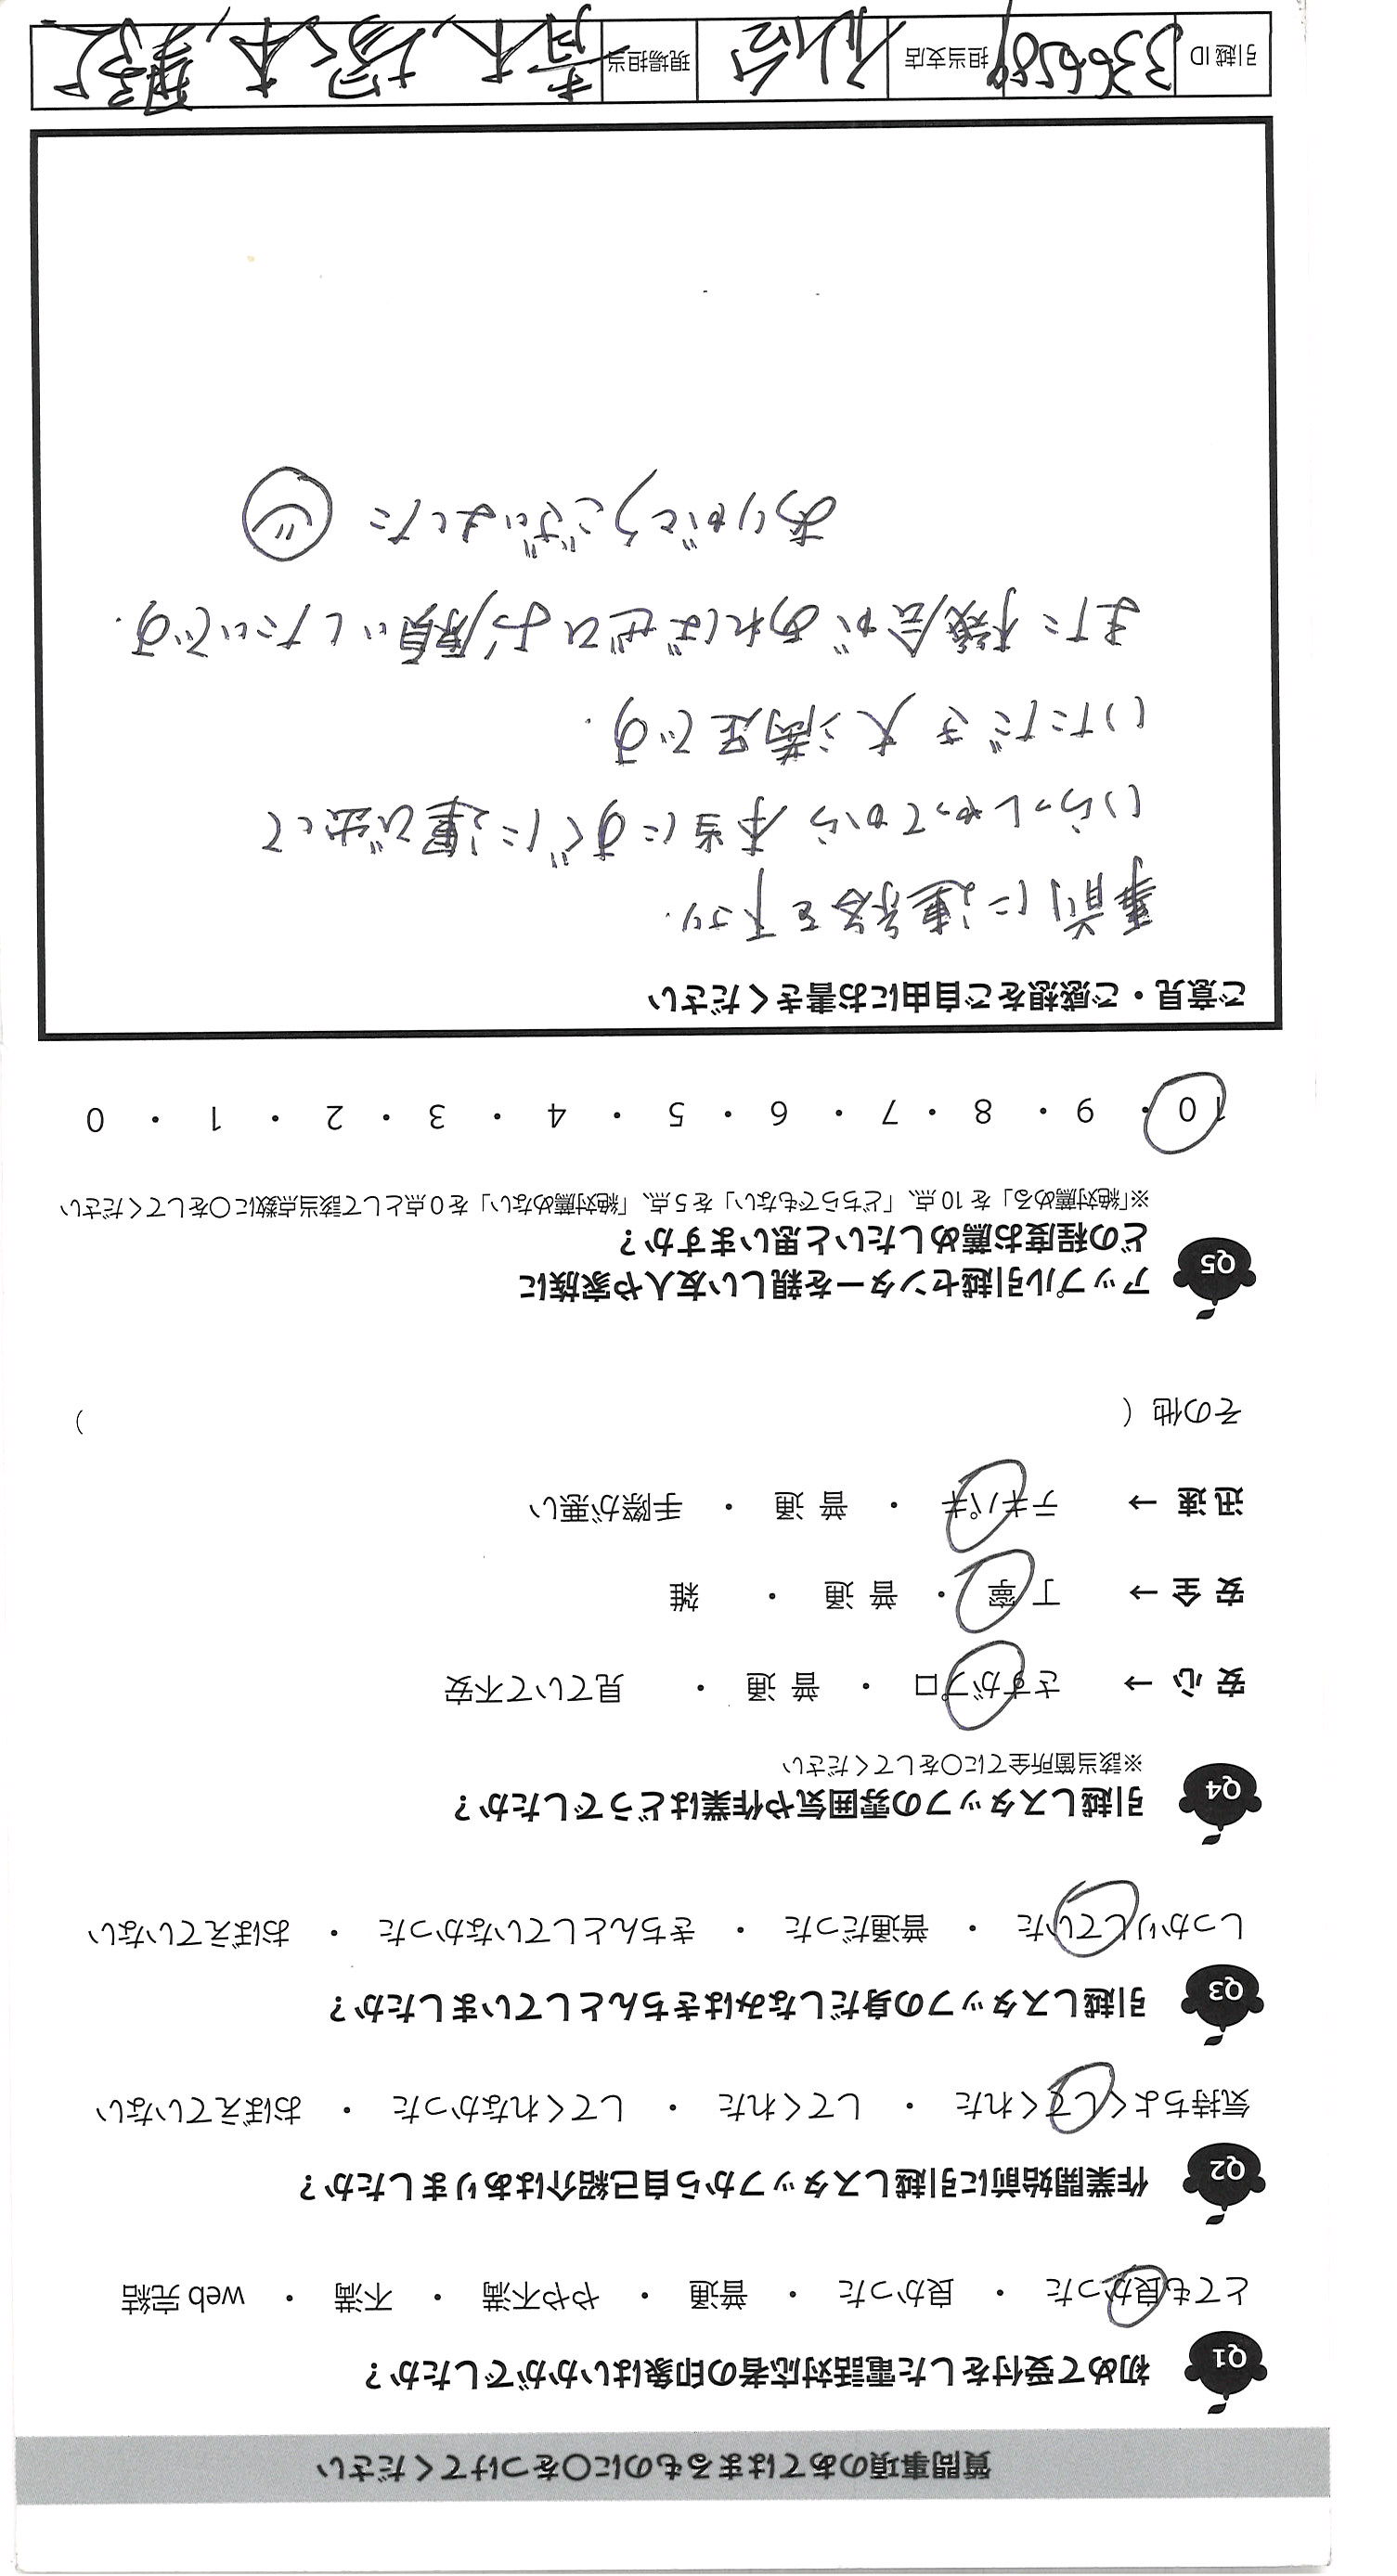 質問事項のあてはまるものに〇をつけてください
Q1 初めて受付をした電話対応者の印象はいかがでしたか？
とても良かった ・ 良かった ・ 普通 ・ やや不満 ・ 不満 ・ web 完結
Q2 作業開始前に引越しスタッフから自己紹介はありましたか？
気持ちよくしてくれた ・ してくれた ・ してくれなかった ・ おぼえていない
Q3 引越しスタッフの身だしなみはきちんとしていましたか？
しっかりしていた ・ 普通だった ・ きちんとしていなかった ・ おぼえていない
Q4 引越しスタッフの雰囲気や作業はどうでしたか？
※該当箇所全てに〇をしてください
安 心 → さすがプロ ・ 普 通 ・ 見ていて不安
安 全 → 丁 寧 ・ 普 通 ・ 雑
迅 速 → テキパキ ・ 普 通 ・ 手際が悪い
その他（ ）
Q5 アップル引越センターを親しい友人や家族に
どの程度お薦めしたいと思いますか？
※「絶対薦める」を 10 点、「どちらでもない」を 5 点、「絶対薦めない」を 0 点として該当点数に〇をしてください
10 ・ 9 ・ 8 ・ 7 ・ 6 ・ 5 ・ 4 ・ 3 ・ 2 ・ 1 ・ 0
ご意見・ご感想をご自由にお書きください
事前に連絡を下さり、
いらっしゃってから本当にすぐに運び出して
いただき大満足です。
また機会があればぜひお願いしたいです。
ありがとうございました
引越 ID 3366589 担当支店 仙台 現場担当 青木、塚本,